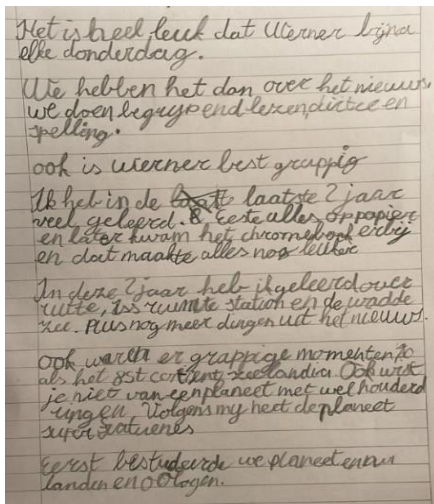 Het is heel leuk dat Werner bijna
elke donderdag.
We hebben het dan over het nieuws
we doen begrypend lezen dictee en
spelling.
ook is Werner best grappig
Ik heb in de laatste 2 jaar
veel geleerd. Eeste alles op papier
en later kwam het chromebook erbij
en dat maakte alles nog leuker
In deze 2 jaar heb ik geleerd over
rutte, Iss ruimte station en de wadde
zee. Plus nog meer dingen uit het nieuws.
Ook waren er grappige momenten zo
als het 8st continent zeelandia. Ook wist
je niet van een planeet met wel honderd
ringen, Volgens my heet de planeet
super
Eerst bestudeerde we planeten nu
landen en oologen.